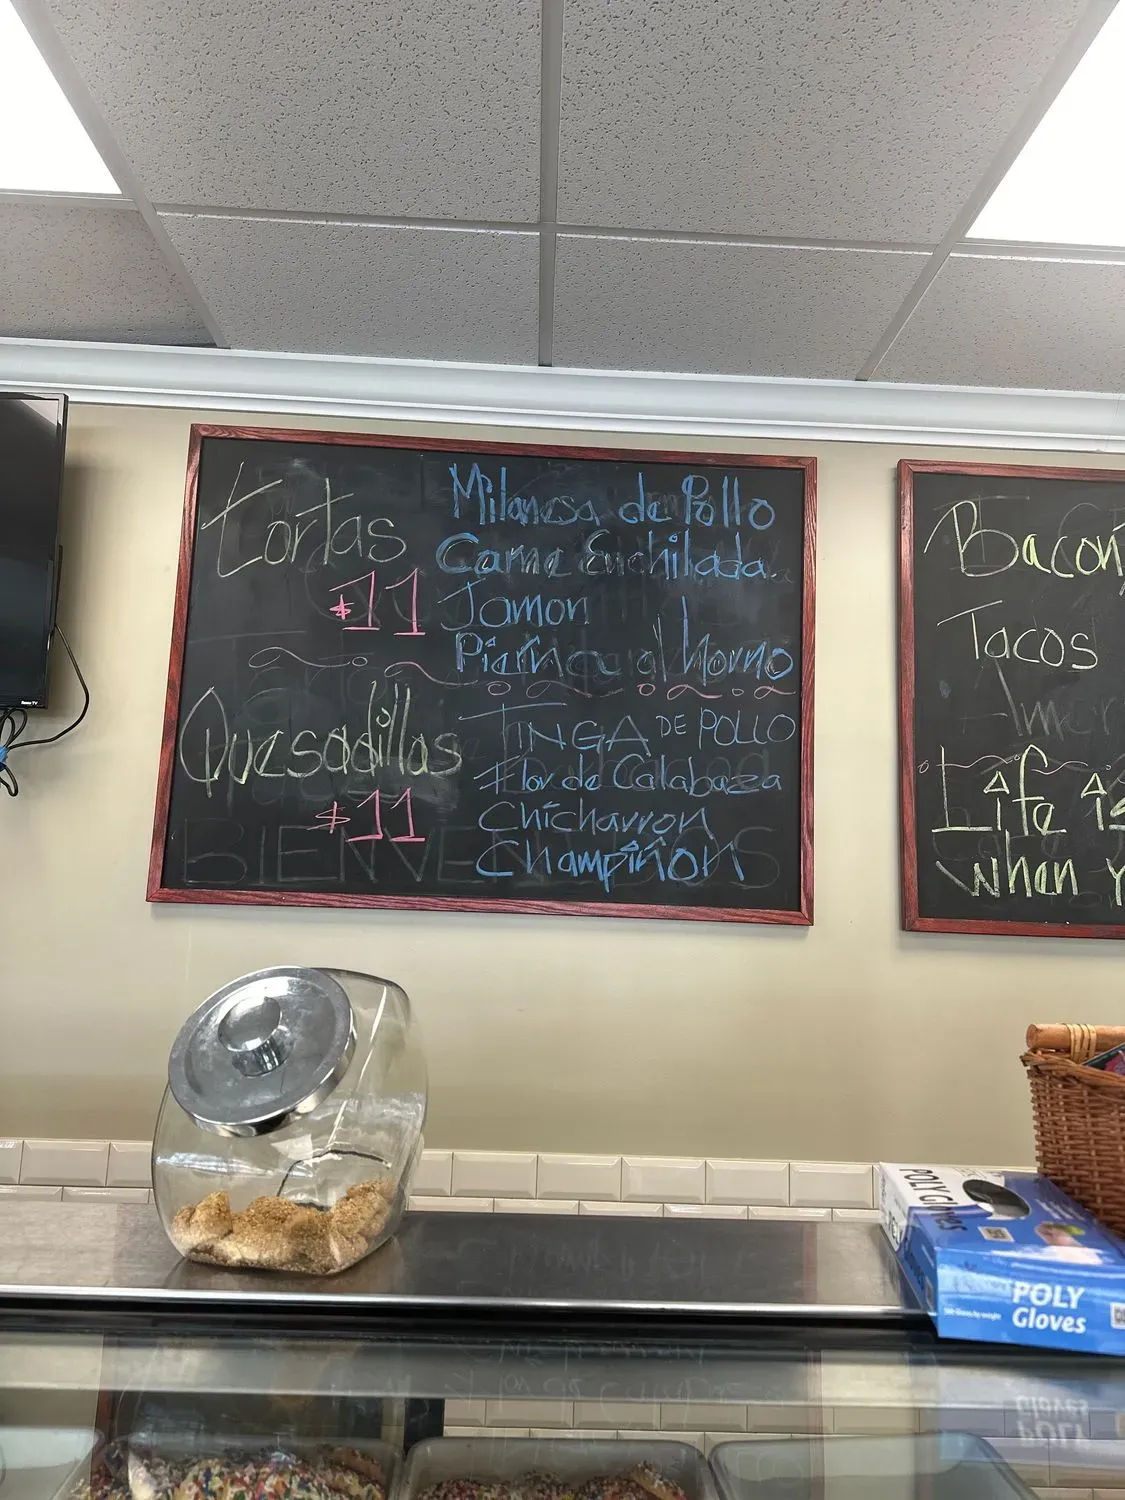 Tortas
$11
Milanesa de Pollo
Carne Enchilada
Jamon
Pierna al Horno
Quesadillas
$11
TINGA DE POLLO
Flor de Calabaza
Chicharron
Champiñon
BIENVENIDOS
Bacon,
Tacos
Life is
when y
Roku TV
POLY Gloves
POLY
Gloves